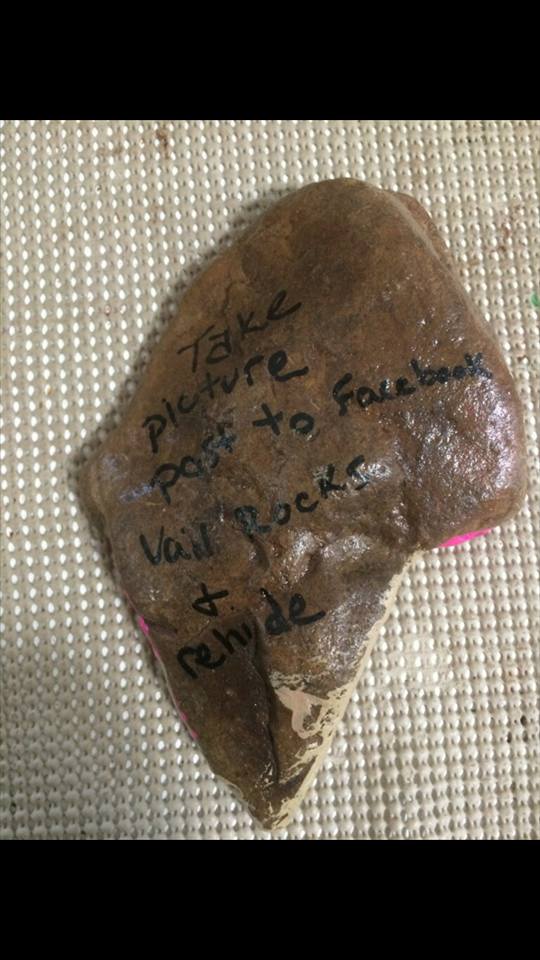 Take
picture
post to Facebook
Vail Rocks
+
rehide